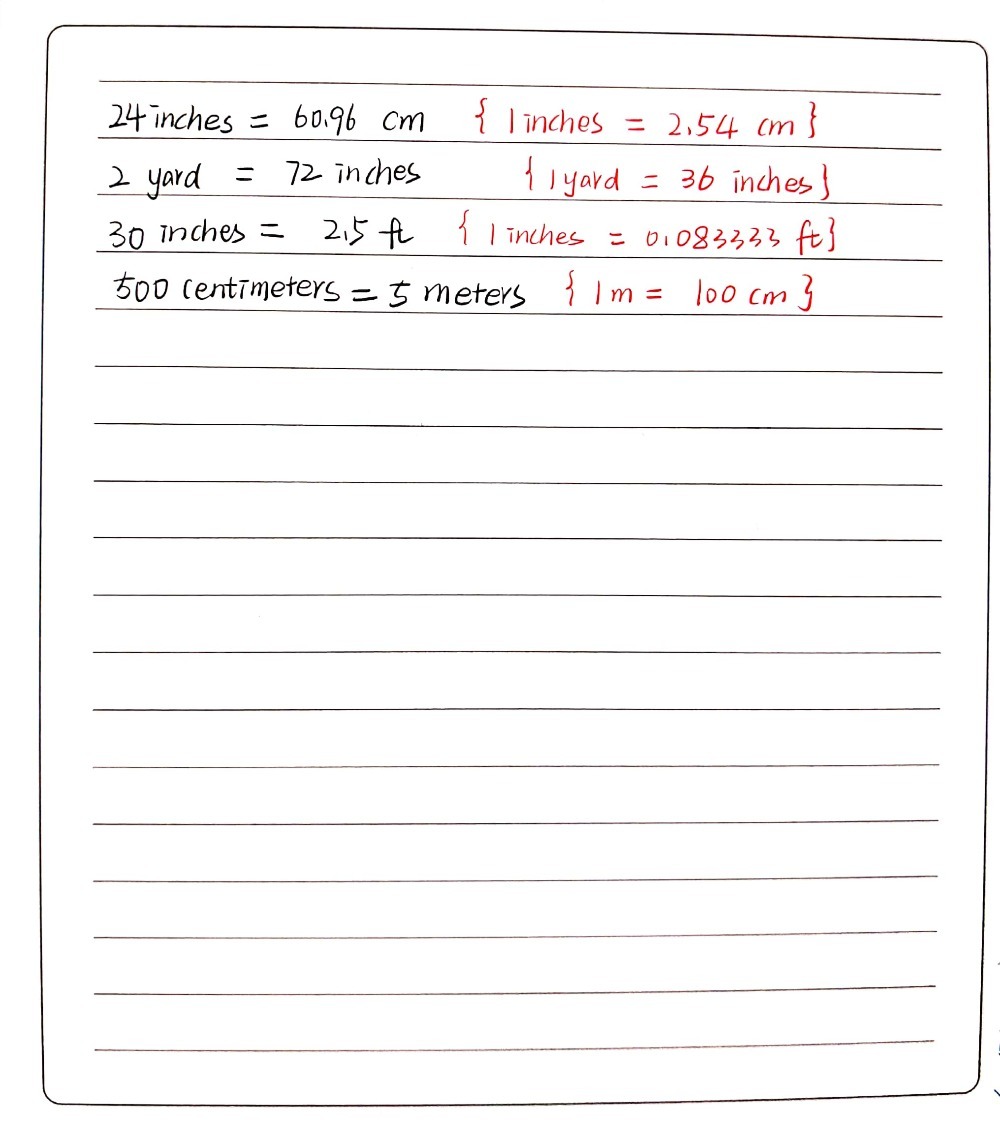 24 inches = 60.96 cm { 1 inches = 2.54 cm }
2 yard = 72 inches { 1 yard = 36 inches }
30 inches = 2.5 ft { 1 inches = 0.083333 ft }
500 centimeters = 5 meters { 1 m = 100 cm }